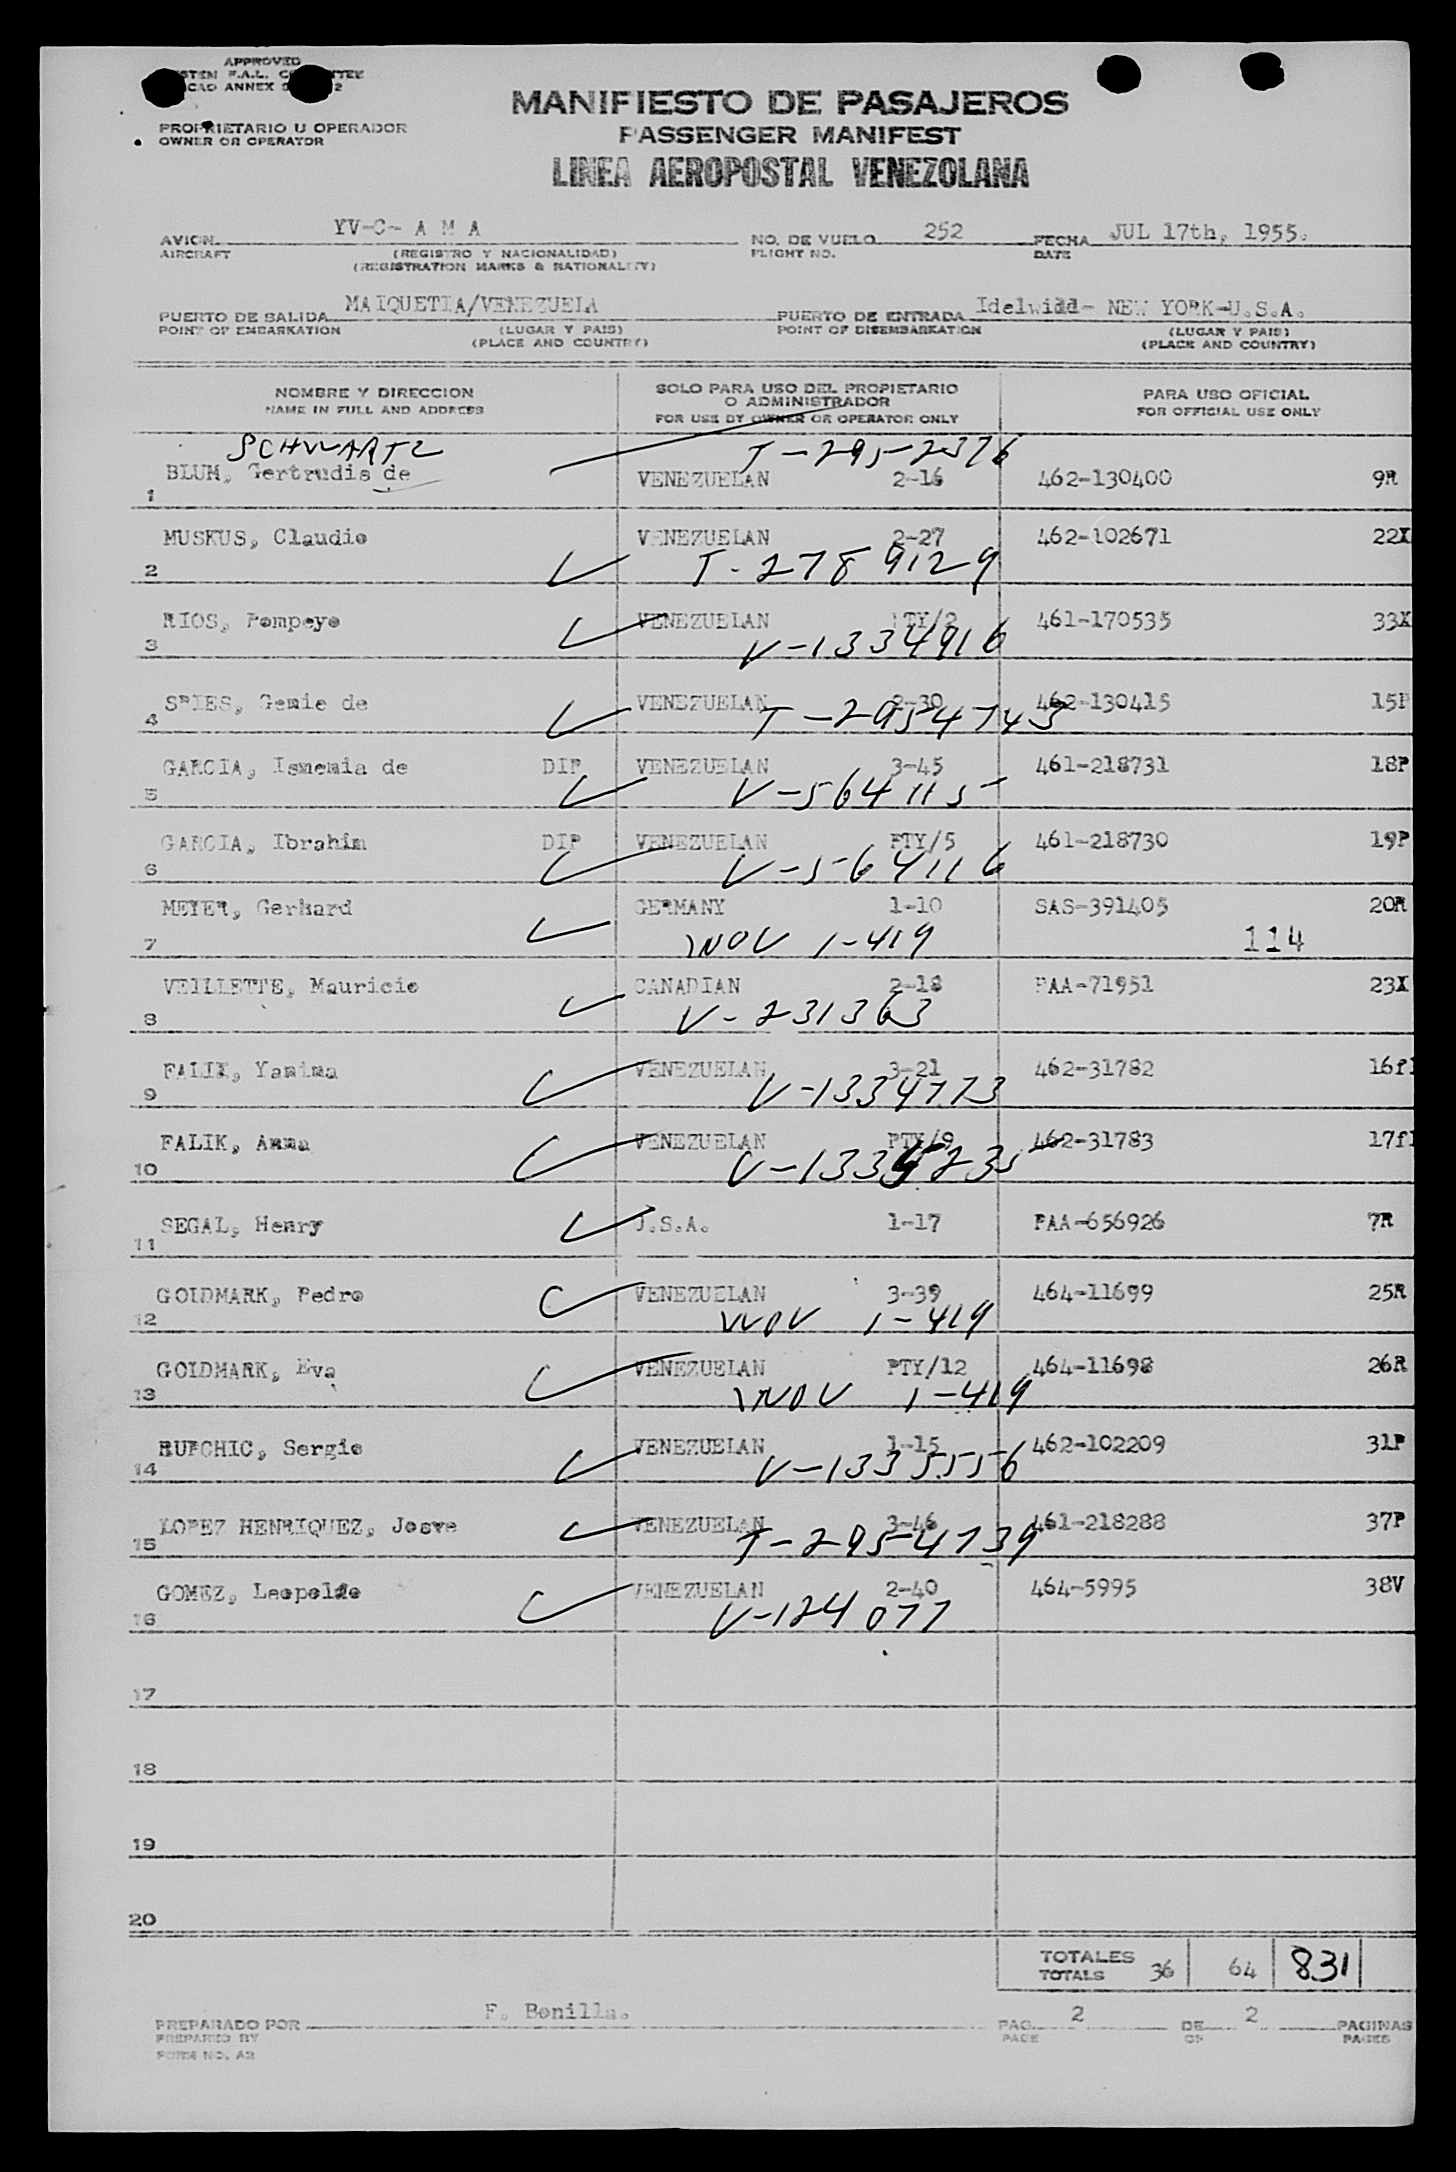 APPROVED
MANIFIESTO DE PASAJEROS
PASSENGER MANIFEST
LINEA AEROPOSTAL VENEZOLANA
PROPRIETARIO U OPERADOR
OWNER OR OPERATOR
AVION YV-C- A M A NO. DE VUELO 252 FECHA JUL 17th, 1955.
AIRCRAFT (REGISTRO Y NACIONALIDAD) FLIGHT NO. DATE
(REGISTRATION MARKS & NATIONALITY)
PUERTO DE SALIDA MAIQUETIA/VENEZUELA PUERTO DE ENTRADA Idelwidd- NEW YORK-U.S.A.
POINT OF EMBARKATION (LUGAR Y PAIS) POINT OF DISEMBARKATION (LUGAR Y PAIS)
(PLACE AND COUNTRY) (PLACE AND COUNTRY)
NOMBRE Y DIRECCION SOLO PARA USO DEL PROPIETARIO O ADMINISTRADOR PARA USO OFICIAL
NAME IN FULL AND ADDRESS FOR USE BY OWNER OR OPERATOR ONLY FOR OFFICIAL USE ONLY
SCHWARTZ T-295-2376
1 BLUM, Gertrudis de VENEZUELAN 2-16 462-130400 9R
MUSKUS, Claudio VENEZUELAN 2-27 462-102671 22X
2 T-2789129
RIOS, Pompeyo VENEZUELAN PTY/2 461-170535 33X
3 V-1334916
SRIES, Gemie de VENEZUELAN 2-30 462-130415 15P
4 T-2954743
GARCIA, Ismemia de DIP VENEZUELAN 3-45 461-218731 18P
5 V-564115
GARCIA, Ibrahim DIP VENEZUELAN PTY/5 461-218730 19P
6 V-564116
MEYER, Gerhard GERMANY 1-10 SAS-391405 20R
7 WOV 1-419 114
VEILLETTE, Mauricio CANADIAN 2-18 PAA-71951 23X
8 V-231363
FALIK, Yamima VENEZUELAN 3-21 462-31782 16f1
9 V-1334773
FALIK, Amma VENEZUELAN PTY/9 462-31783 17f1
10
SEGAL, Henry U.S.A. 1-17 PAA-656926 7R
11
GOLDMARK, Pedro VENEZUELAN 3-39 464-11699 25R
12 WOV 1-419
GOLDMARK, Eva VENEZUELAN PTY/12 464-11698 26R
13 WOV 1-419
RUFCHIC, Sergio VENEZUELAN 1-15 462-102209 31P
14 V-1335556
15 LOPEZ HENRIQUEZ, Josve VENEZUELAN 3-46 461-218288 37P
T-2954739
GOMEZ, Leopoldo VENEZUELAN 2-40 464-5995 38V
16 V-124077
17
18
19
20
TOTALES
TOTALS 36 64 831
PREPARADO POR F. Bonilla. PAG. 2 DE 2 PAGINAS
PREPARED BY PAGE OF PAGES
FORM NO. A2